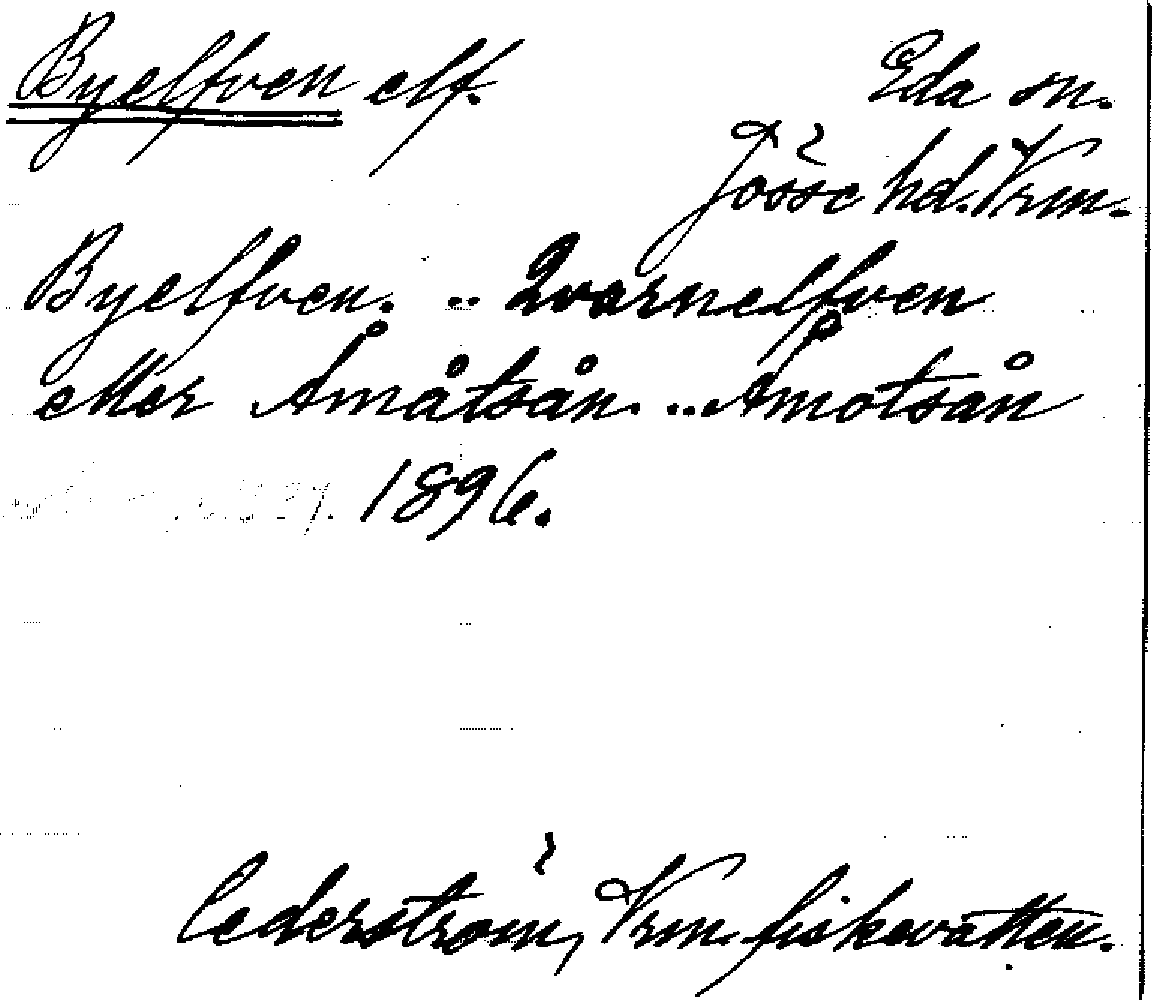 Byelfven elf. Eda sn.
Jösse hd. Vrm.
Byelfven. .. Qvarnelfven
eller Åmåtsån. .. Åmotsån
1896.
Cederström, Vrm. fiskevatten.